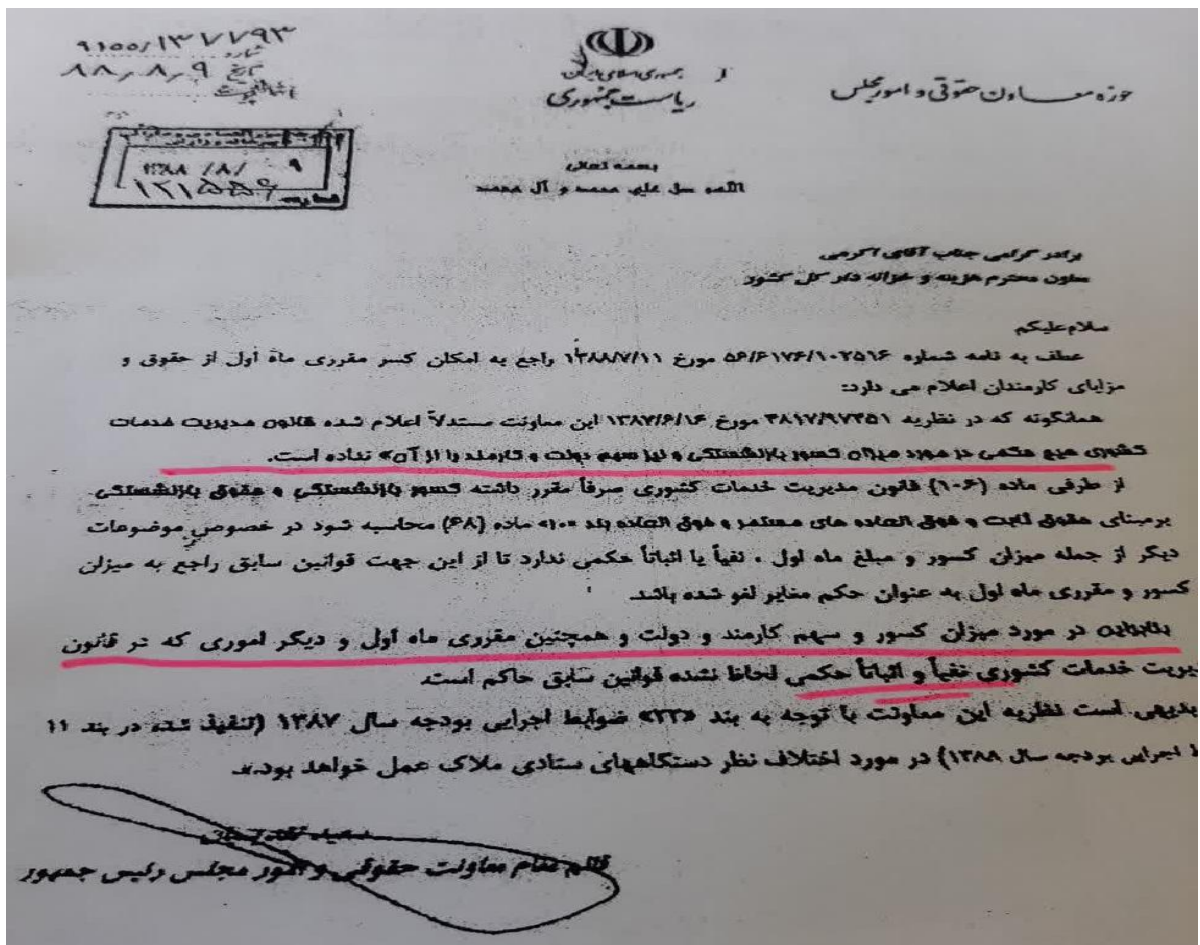 ۹۱۵۵/۱۳۷۷۹۳
شماره
تاریخ ۸۸/۸/۹
پیوست
جمهوری اسلامی ایران
ریاست جمهوری
حوزه معاون حقوقی و امور مجلس
۱۳۸۸ /۸/ ۹
۱۲۱۵۵۶
بسمه تعالی
اللهم صل علی محمد و آل محمد
برادر گرامی جناب آقای اکرمی
معاون محترم هزینه و خزانه دار کل کشور
سلام علیکم
عطف به نامه شماره ۵۶/۶۱۷۶/۱۰۲۵۱۶ مورخ ۱۳۸۸/۷/۱۱ راجع به امکان کسر مقرری ماه اول از حقوق و
مزایای کارمندان اعلام می دارد:
همانگونه که در نظریه ۳۸۱۷/۹۷۳۵۱ مورخ ۱۳۸۷/۶/۱۶ این معاونت مستدلاً اعلام شده قانون مدیریت خدمات
کشوری هیچ حکمی در مورد میزان کسور بازنشستگی و نیز سهم دولت و کارمند را از آن» نداده است.
از طرفی ماده (۱۰۶) قانون مدیریت خدمات کشوری صرفاً مقرر داشته کسور بازنشستگی و حقوق بازنشستگی
برمبنای حقوق ثابت و فوق العاده های مستمر و فوق العاده بند «۱۰» ماده (۶۸) محاسبه شود در خصوص موضوعات
دیگر از جمله میزان کسور و مبلغ ماه اول ، نفیاً یا اثباتاً حکمی ندارد تا از این جهت قوانین سابق راجع به میزان
کسور و مقرری ماه اول به عنوان حکم مغایر لغو شده باشد.
بنابراین در مورد میزان کسور و سهم کارمند و دولت و همچنین مقرری ماه اول و دیگر اموری که در قانون
یریت خدمات کشوری نفیاً و اثباتاً حکمی لحاظ نشده قوانین سابق حاکم است.
بدیهی است نظریه این معاونت با توجه به بند «۲۲» ضوابط اجرایی بودجه سال ۱۳۸۷ (تنفیذ شده در بند ۱۱
ط اجرایی بودجه سال ۱۳۸۸) در مورد اختلاف نظر دستگاههای ستادی ملاک عمل خواهد بود.
قائم مقام معاونت حقوقی و امور مجلس رئیس جمهور